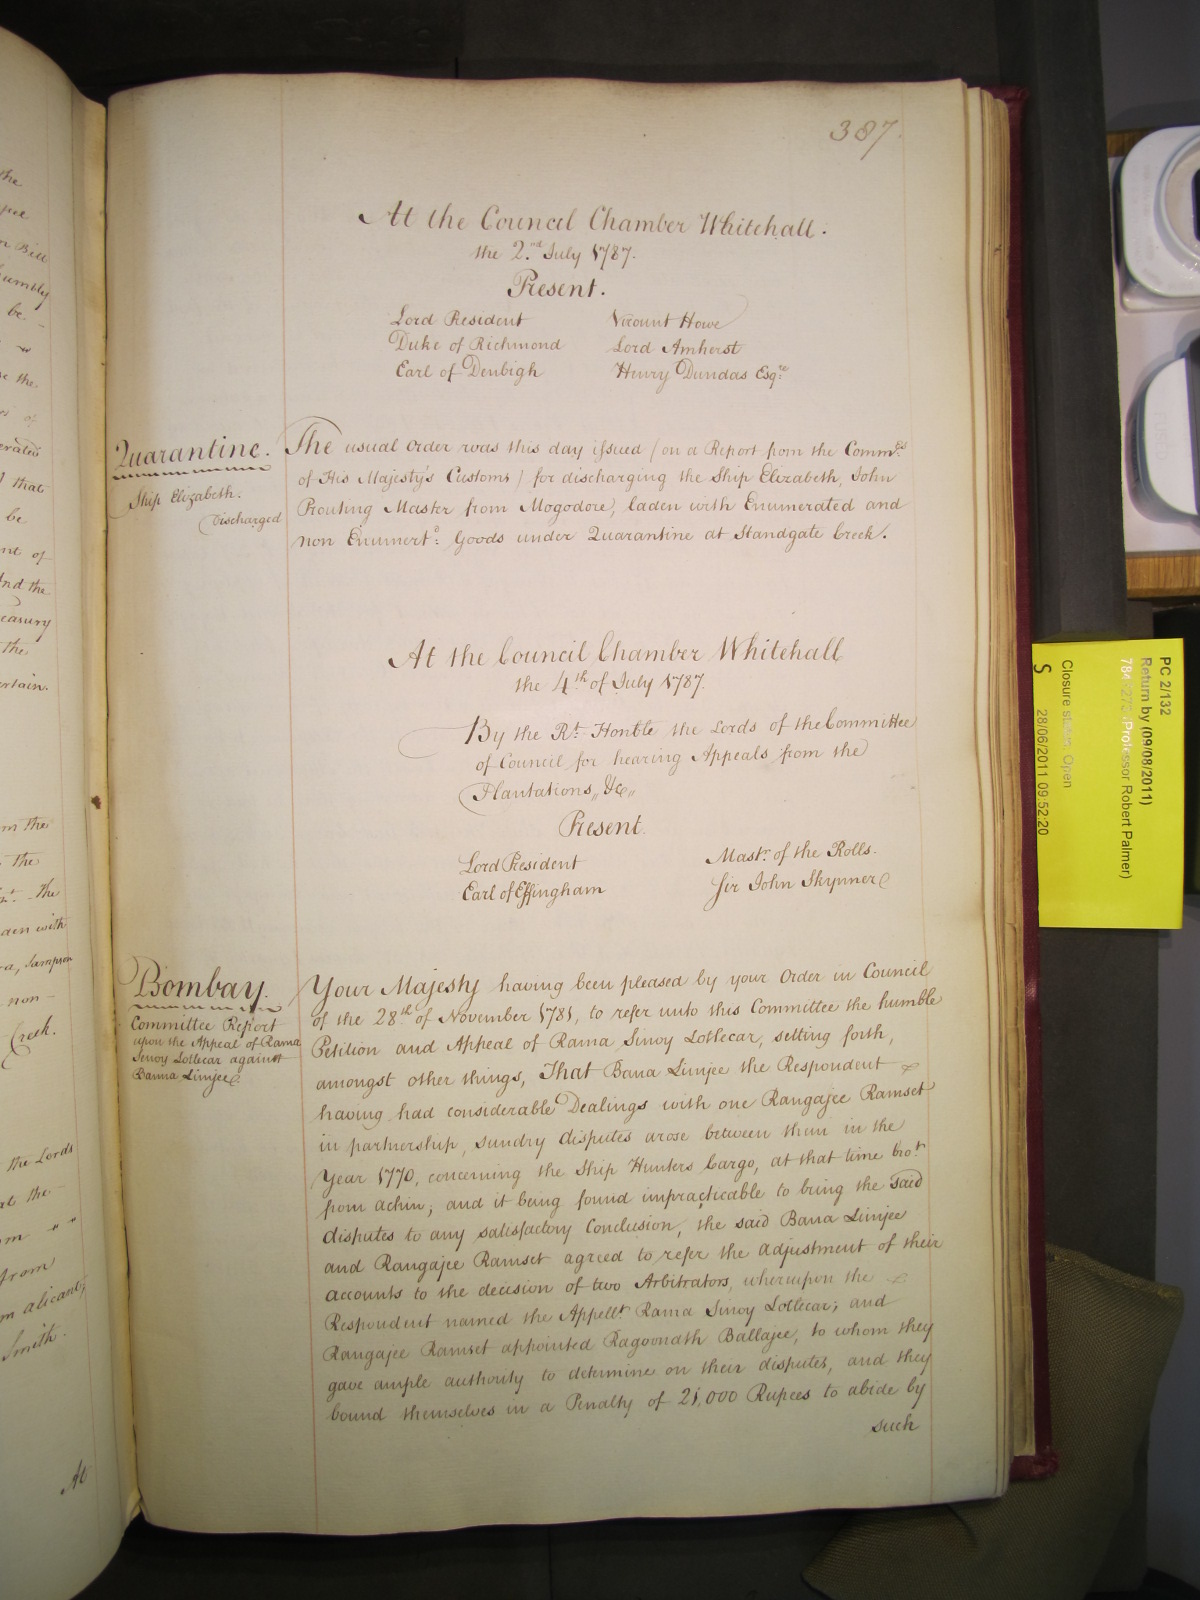 387.
At the Council Chamber Whitehall.
the 2.nd July 1787.
Present.
Lord President
Viscount Howe
Duke of Richmond
Lord Amherst
Earl of Denbigh
Henry Dundas Esqre
Quarantine.
Ship Elizabeth.
Discharged
The usual Order was this day issued (on a Report from the Commrs
of His Majesty's Customs) for discharging the Ship Elizabeth, John
Prouting Master from Mogodore, laden with Enumerated and
non Enumertd: Goods under Quarantine at Standgate Creek.
At the Council Chamber Whitehall
the 4th of July 1787.
By the Rt. Honble the Lords of the Committee
of Council for hearing Appeals from the
Plantations, &c
Present.
Lord President
Mastr. of the Rolls.
Earl of Effingham
Sir John Skynner
Bombay.
Committee Report
upon the Appeal of Rama
Sinoy Lotlecar against
Banna Limjee
Your Majesty having been pleased by your Order in Council
of the 28th of November 1781, to refer unto this Committee the humble
Petition and Appeal of Rama Sinoy Lotlecar, setting forth,
amongst other things, That Bana Limjee the Respondent
having had considerable Dealings with one Rangajee Ramset
in partnership, sundry disputes arose between them in the
Year 1770, concerning the Ship Hunters Cargo, at that time brot.
from achin; and it being found impracticable to bring the said
disputes to any satisfactory Conclusion, the said Bana Limjee
and Rangajee Ramset agreed to refer the adjustment of their
accounts to the decision of two Arbitrators, whereupon the
Respondent named the Appellt. Rama Sinoy Lotlecar; and
Rangajee Ramset appointed Ragoonath Ballajee, to whom they
gave ample authority to determine on their disputes, and they
bound themselves in a Penalty of 21,000 Rupees to abide by
such
the
Bill
humbly
be
the
of
that
be
of
And the
the
the
the
the
laden with
Sampson
non
Creek.
the Lords
the
from
alicant,
Smith.
At
PC 2/132
Return by (09/08/2011)
(Professor Robert Palmer)
Closure status: Open
S 28/06/2011 09:52:20